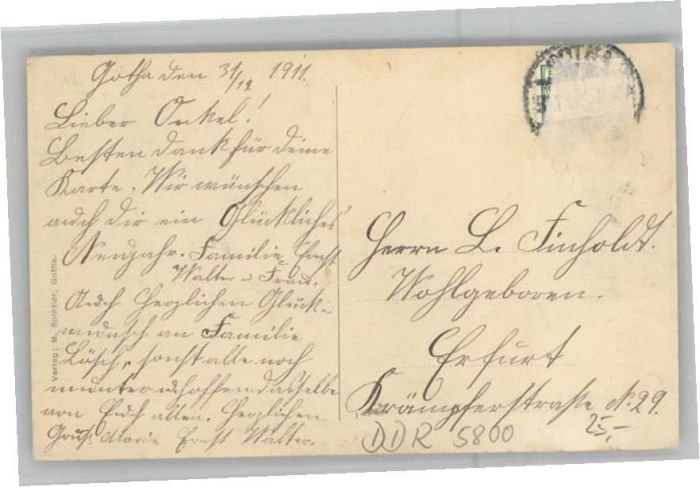 Gotha den 31/12 1911.
Lieber Onkel!
Besten Dank für Deine
Karte. Wir wünschen
auch Dir ein Glückliches
Neujahr. Familie Ernst
Walter u Frau.
Auch Herzlichen Glück-
wunsch an Familie
Lösch, sonst alle noch
munter u hoffen dasselbe
von Euch allen. Herzlichen
Gruß Marie Ernst Walter.
Verlag: M. Spintler, Gotha.
Herrn L. Finholdt.
Wohlgeboren.
Erfurt
Krämpferstraße No 29.
25,-
DDR 5800